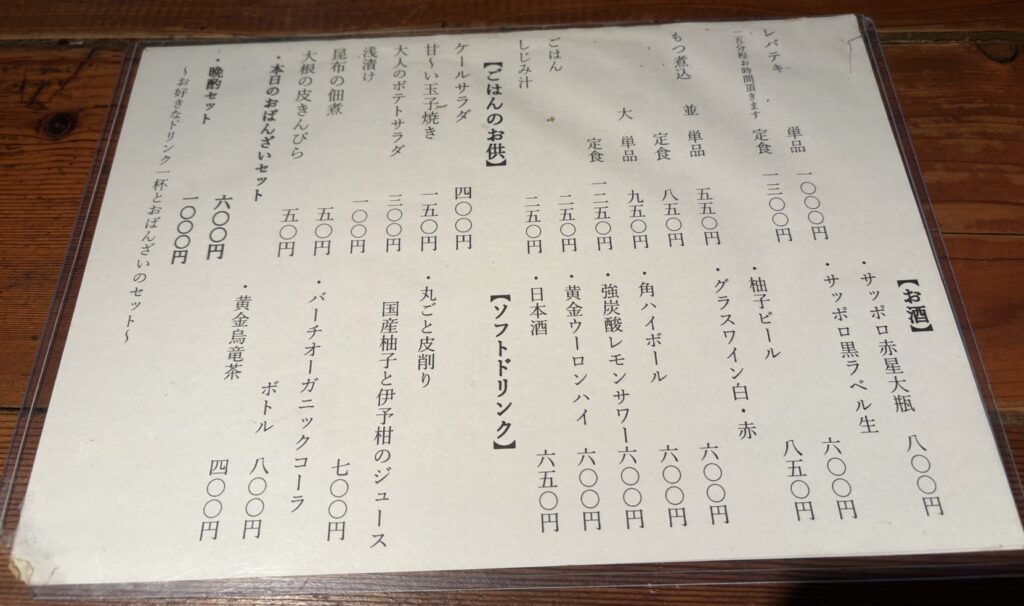 レバテキ　単品　一〇〇〇円
一五分程お時間頂きます　定食　一三〇〇円
もつ煮込　並　単品　五五〇円
定食　八五〇円
大　単品　九五〇円
定食　一二五〇円
ごはん　二五〇円
しじみ汁　二五〇円
【ごはんのお供】
ケールサラダ　四〇〇円
甘〜い玉子焼き　一五〇円
大人のポテトサラダ　三〇〇円
浅漬け　一〇〇円
昆布の佃煮　五〇円
大根の皮きんぴら　五〇円
・本日のおばんざいセット　六〇〇円
・晩酌セット　一〇〇〇円
〜お好きなドリンク一杯とおばんざいのセット〜
【お酒】
・サッポロ赤星大瓶　八〇〇円
・サッポロ黒ラベル生　六〇〇円
・柚子ビール　八五〇円
・グラスワイン白・赤　六〇〇円
・角ハイボール　六〇〇円
・強炭酸レモンサワー　六〇〇円
・黄金ウーロンハイ　六〇〇円
・日本酒　六五〇円
【ソフトドリンク】
・丸ごと皮削り
国産柚子と伊予柑のジュース
七〇〇円
・バーチオーガニックコーラ
ボトル　八〇〇円
・黄金烏竜茶　四〇〇円